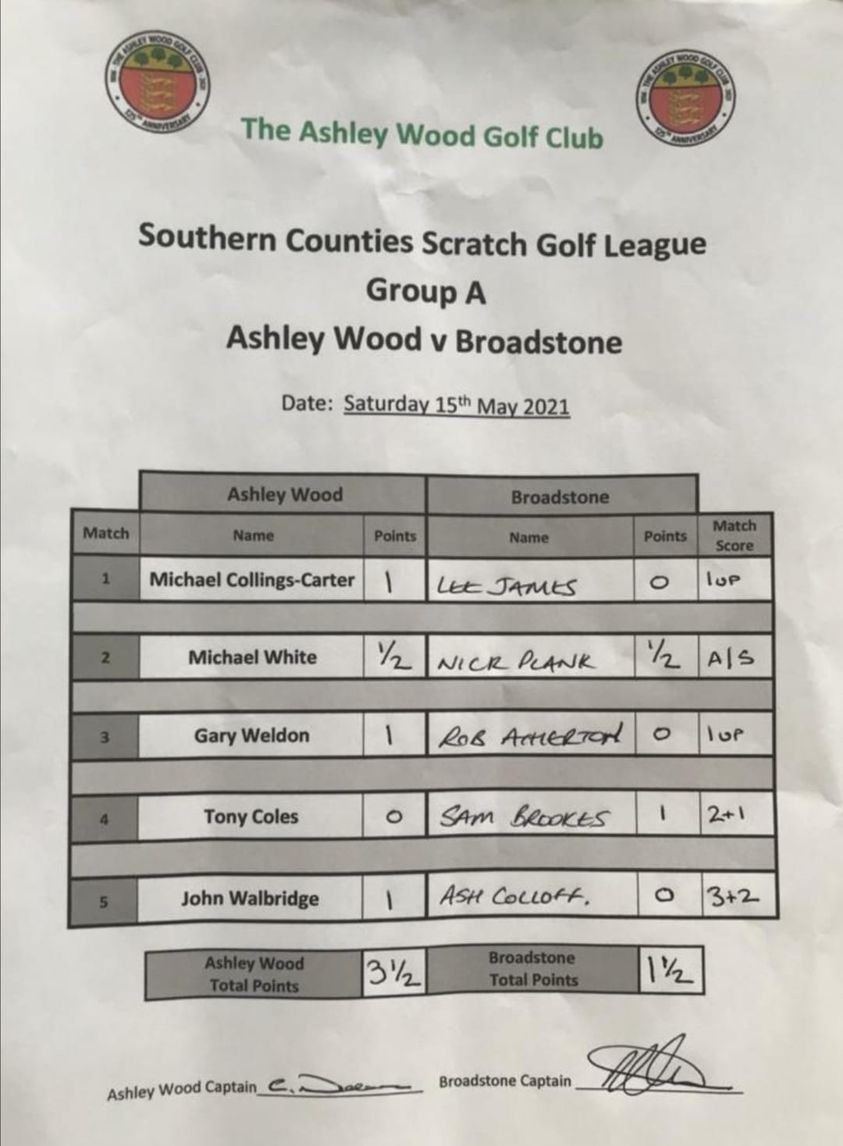 THE ASHLEY WOOD GOLF CLUB
125TH ANNIVERSARY
THE ASHLEY WOOD GOLF CLUB
125TH ANNIVERSARY
The Ashley Wood Golf Club
Southern Counties Scratch Golf League
Group A
Ashley Wood v Broadstone
Date: Saturday 15th May 2021
Ashley Wood Broadstone
Match Name Points Name Points Match Score
1 Michael Collings-Carter 1 LEE JAMES 0 1UP
2 Michael White 1/2 NICK PLANK 1/2 A|S
3 Gary Weldon 1 ROB ATHERTON 0 1UP
4 Tony Coles 0 SAM BROOKES 1 2+1
5 John Walbridge 1 ASH COLLOFF. 0 3+2
Ashley Wood Total Points 3 1/2 Broadstone Total Points 1 1/2
Ashley Wood Captain Broadstone Captain